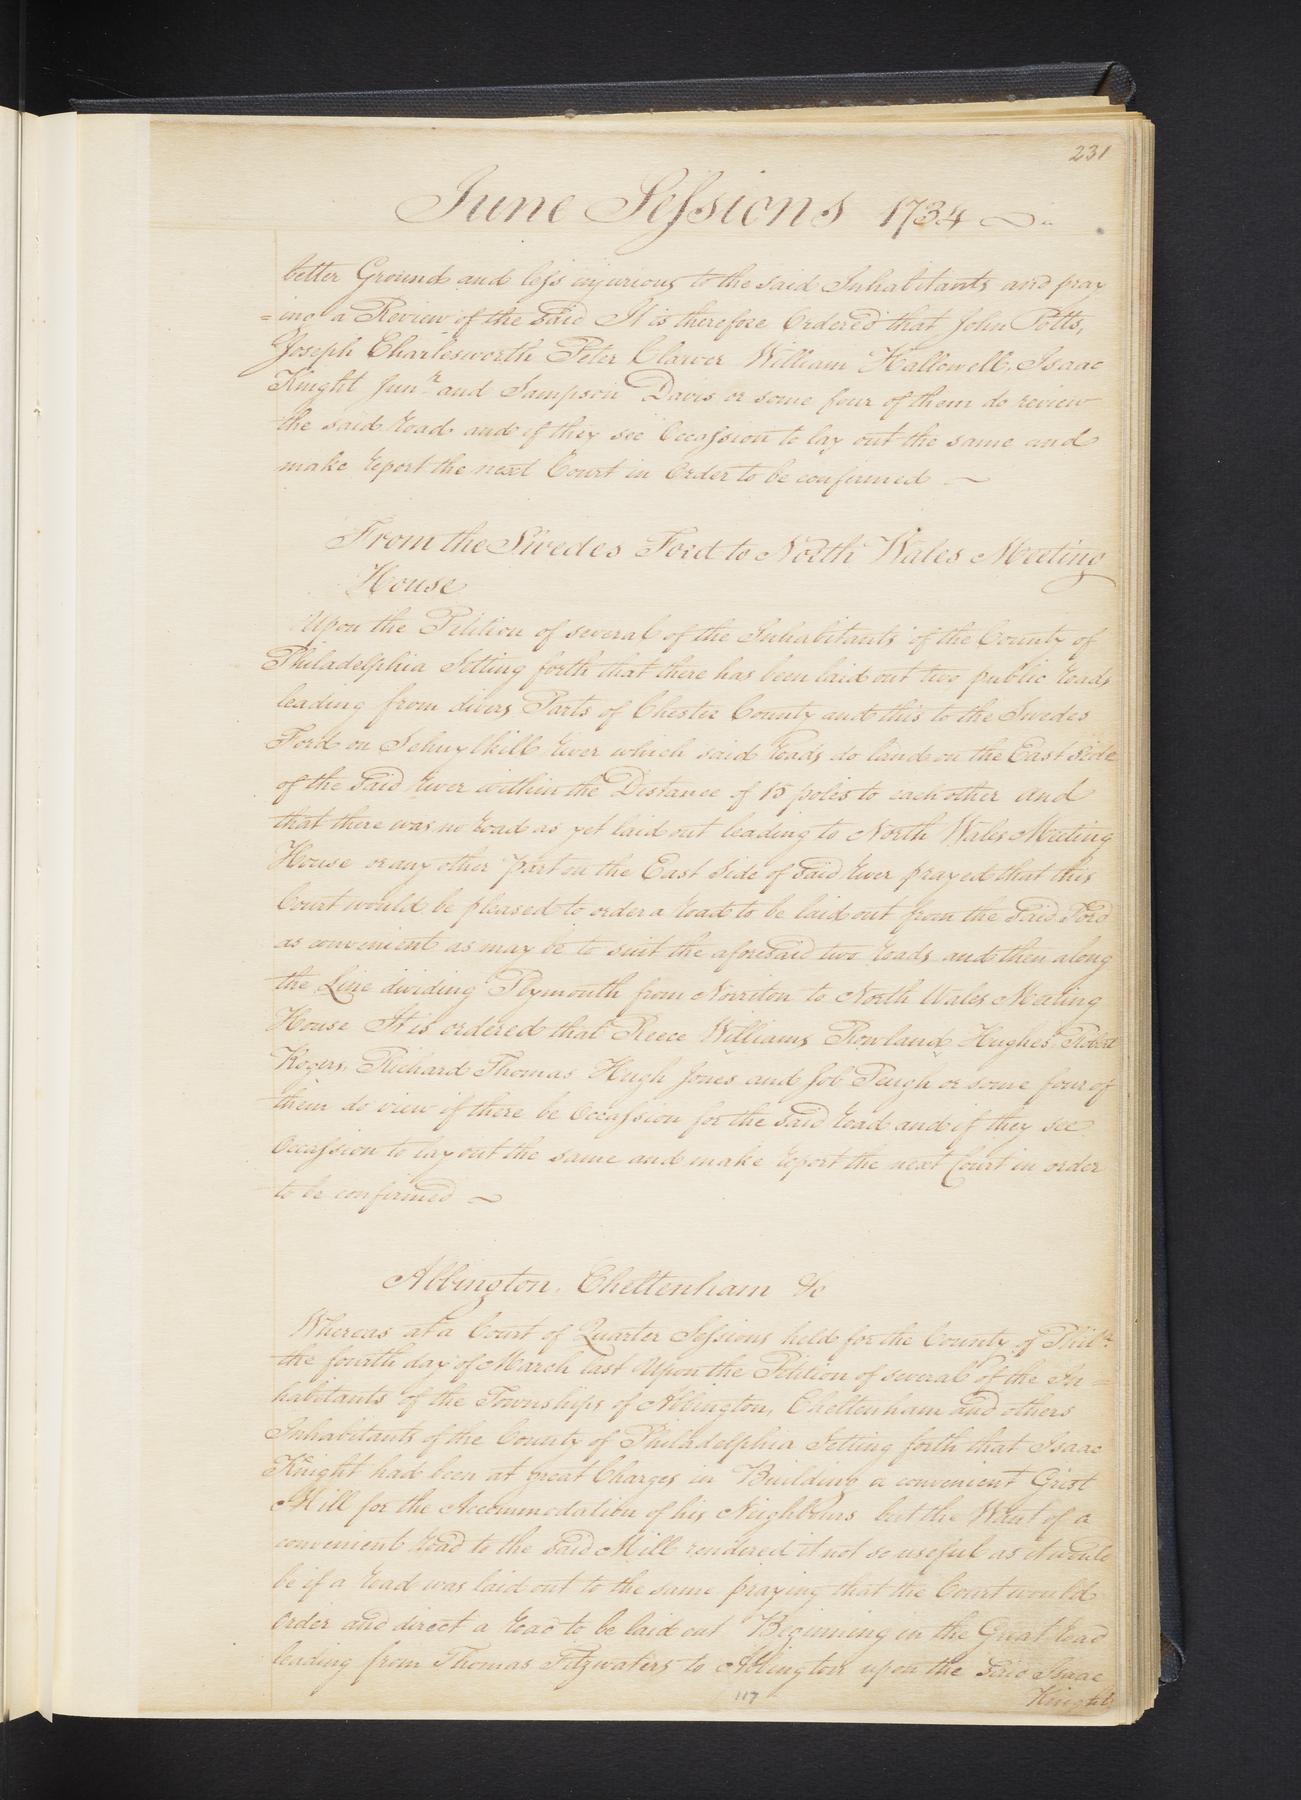 231
June Sessions 1734
better Ground and less injurious to the said Inhabitants and pray
=ing a Review of the said It is therefore Ordered that John Potts,
Joseph Charlesworth Peter Clawer William Hallowell, Isaac
Knight Junr and Sampson Davis or some four of them do review
the said Road and if they see Occassion to lay out the same and
make report the next Court in Order to be confirmed
From the Swedes Ford to North Wales Meeting
House
Upon the Petition of several of the Inhabitants of the County of
Philadelphia Setting forth that there has been laid out two public Roads
leading from divers Parts of Chester County and this to the Swedes
Ford on Schuylkill River which said Roads do land on the East Side
of the said River within the Distance of 15 poles to each other and
that there was no Road as yet laid out leading to North Wales Meeting
House or any other part on the East Side of said River prayed that this
Court would be pleased to order a Road to be laid out from the said Ford
as convenient as may be to suit the aforesaid two Roads and then along
the Line dividing Plymouth from Norriton to North Wales Meeting
House It is ordered that Reece Williams Rowland Hughes Robert
Rogers, Richard Thomas Hugh Jones and Job Peugh or some four of
them do view if there be Occassion for the said Road and if they see
Occassion to lay out the same and make report the next Court in order
to be confirmed
Abbington, Cheltenham &c
Whereas at a Court of Quarter Sessions held for the County of Phila.
the fourth day of March last Upon the Petition of several of the In=
habitants of the Townships of Abbington, Cheltenham and others
Inhabitants of the County of Philadelphia Setting forth that Isaac
Knight had been at great Charges in Building a convenient Grist
Mill for the Accommodation of his Neighbours but the Want of a
convenient Road to the said Mill rendered it not so useful as it would
be if a Road was laid out to the same praying that the Court would
Order and direct a Road to be laid out Beginning in the Great Road
leading from Thomas Fitzwaters to Abington upon the said Isaac
Knights
117